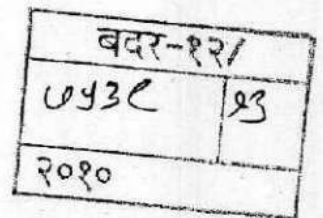 बदर-१२/
७५३८ १३
२०१०